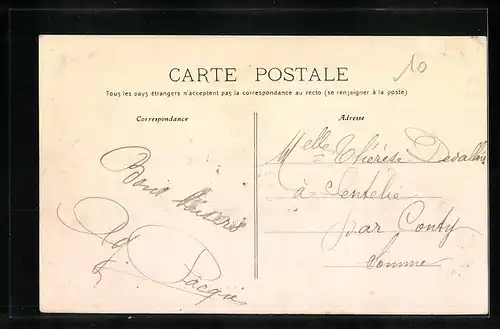 10
CARTE POSTALE
Tous les pays étrangers n'acceptent pas la correspondance au recto (se renseigner à la poste)
Correspondance
Adresse
Bons baisers
Melle Thérèse
à Sentelie
par Conty
Somme